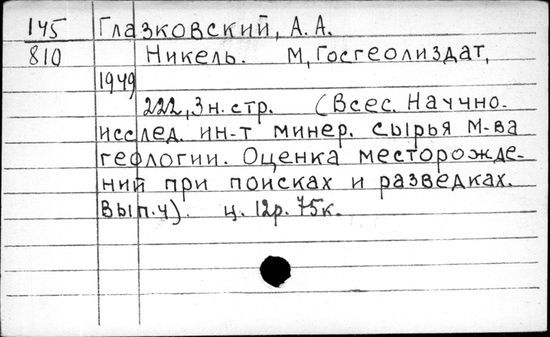 145 Глазковский, А. А.
810 Никель. М, Госгеолиздат,
1949
222, 3 н. стр. (Всес. Научно-
исслед. ин-т минер. сырья М-ва
геологии. Оценка месторожде-
ний при поисках и разведках.
Вып. 4). ц. 12р. 75к.